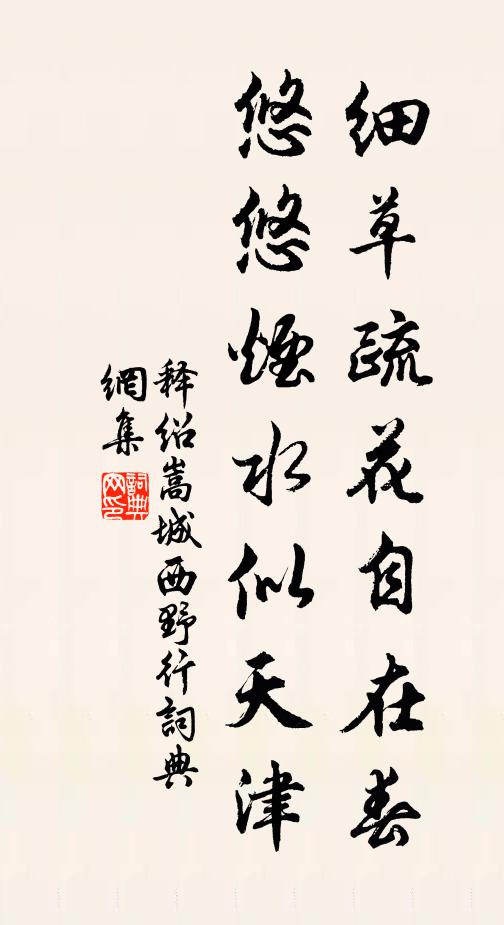 细草疏花自在春
悠悠烟水似天津
释绍嵩城西野行詞典
網集
詞典
网印